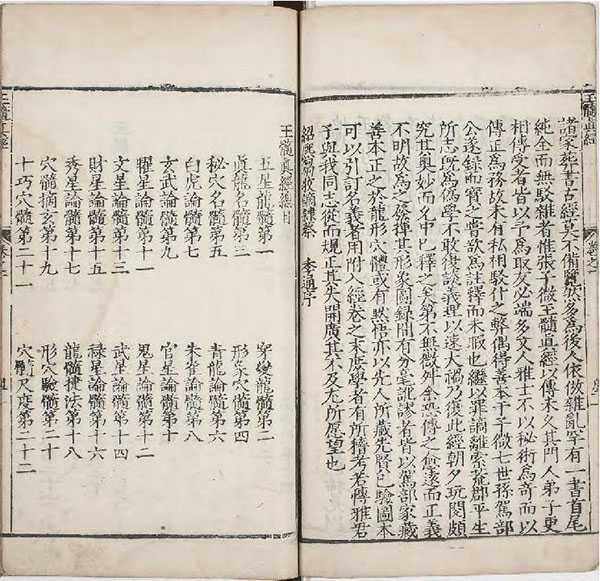 諸家葬書古經莫不備歷然多爲後人依倣雜亂罕有一書首尾
純全而無駁雜者惟張子微玉髓真經以傳未久其門人弟子更
相傳受者皆以予爲取友必端多文人雅士不以秘術爲奇而以
傳正爲務故未有私相駁什之弊偶得善本于子微七世孫駕部
公遂録而寶之嘗欲爲註釋而未暇也繼以罪謫離索荒郡平生
所志既爲僞學不敢復談義理以速大禍乃獲此經朝夕玩閱頗
究其奧妙而名中已釋之矣第不無舛余恐傳之愈遠而正義
不明故爲之發揮其形象圖録間有分毫訛謬者皆以駕部家藏
善本正之於龍形穴體或有默悟亦以先人所藏先賢已驗圖本
可以引訂名義者用附入經卷之末庶學者有所稽考若博雅君
子與我同志從而規正其失開廣其不及尤所原望也
紹熙 蔡 季通序
玉髓真經
玉髓真經總目
五星龍髓第一 穿變龍髓第二
真龍名髓第三 形象穴髓第四
秘穴名髓第五 青龍論髓第六
白虎論髓第七 朱雀論髓第八
玄武論髓第九 官星論髓第十
曜星論髓第十一 鬼星論髓第十二
文星論髓第十三 武星論髓第十四
財星論髓第十五 祿星論髓第十六
秀星論髓第十七 龍髓捷法第十八
穴髓摘玄第十九 形穴驗髓第二十
十巧穴髓第二十一 穴髓尺度第二十二
玉髓真經